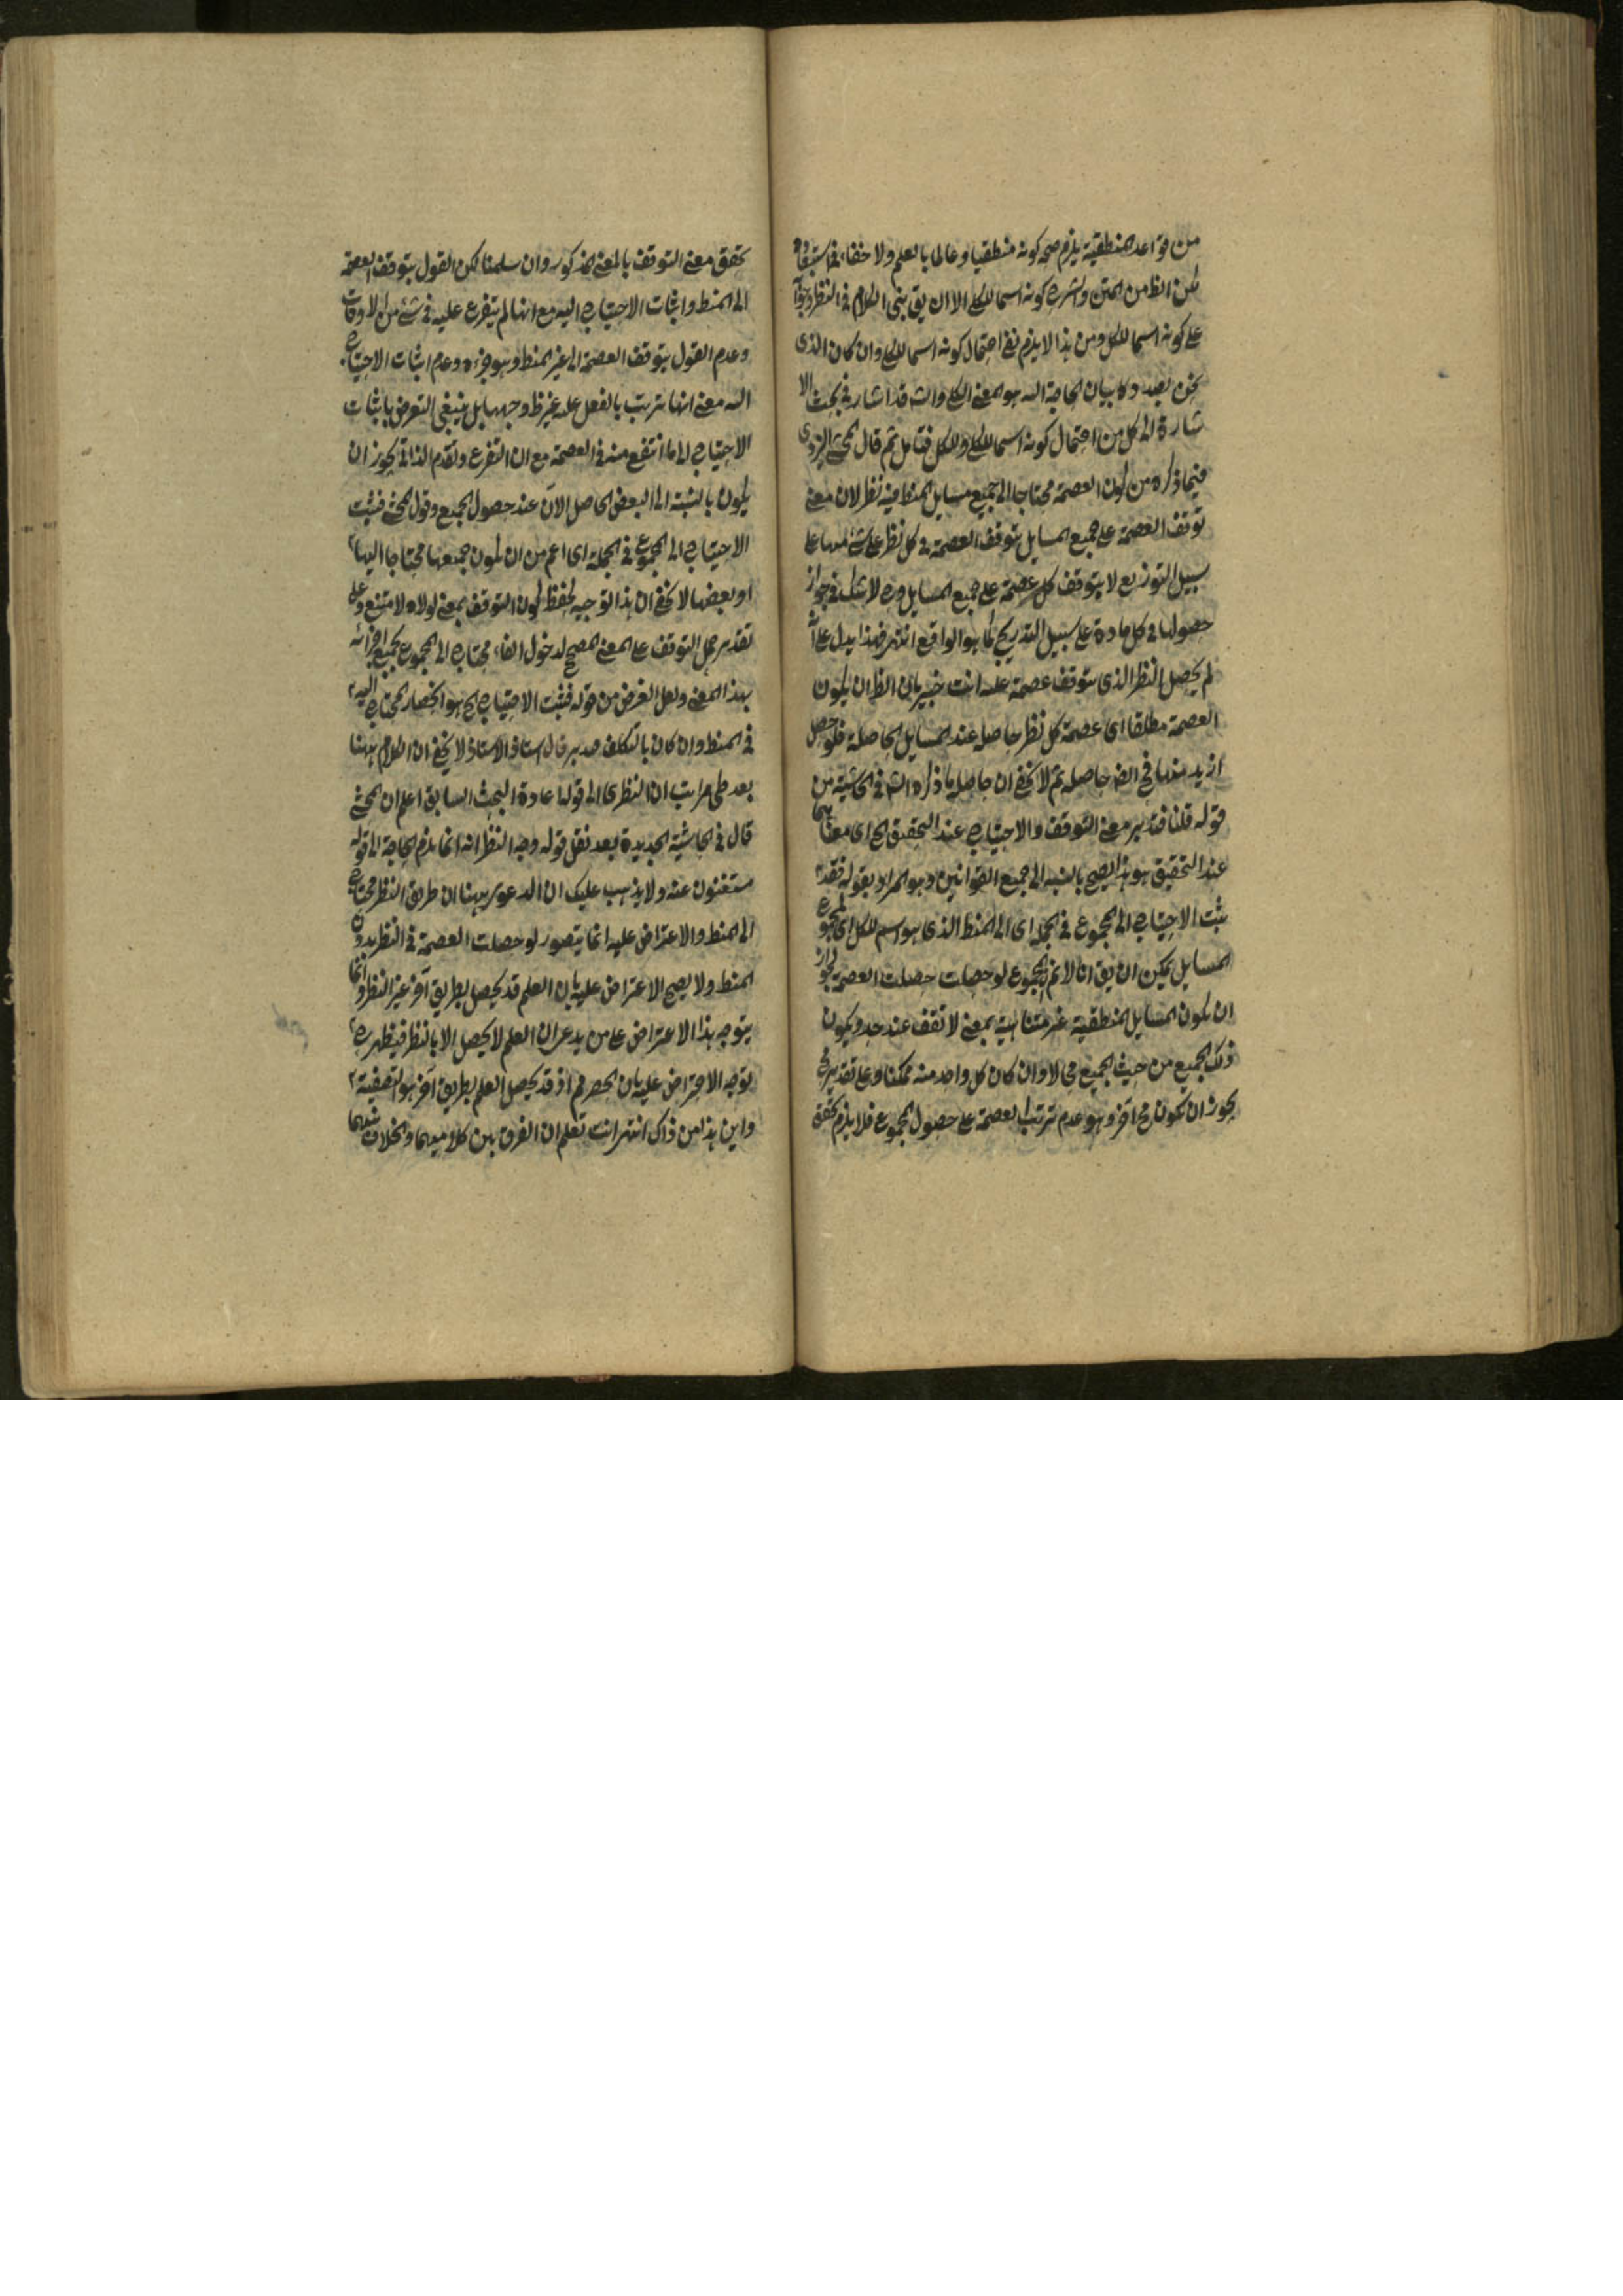 من قواعد المنطقية يلزم صحه كونه منطقيا وعالما بالعلم ولا خفاء في استبعاده
لكن الظ من المتن والشرح كونه اسما للكلي الا ان يق بنى الكلام في النظر وجوابه
على كونه اسما للكل ومن هذا لا يلزم نفي احتمال كونه اسما للكلي وان كان الذى
نحن بصدده بيان الحاجة اليه هو المعنى الكلي والشه قد اشار في بحث الا
شارة الى كل من احتمال كونه اسما للكلي وللكل فتامل ثم قال المحشى اليزدى
فيما ذكره من كون العصمة محتاجا الى جميع مسايل المنط فيه نظر لان معنى
توقف العصمة على جميع المسايل توقف العصمة في كل نظر على شئ منها على
سبيل التوزيع لا يتوقف كل عصمة على جميع المسايل وح لا شك في جواز
حصولها في كل مادة على سبيل التدريج كما هو الواقع انتهى فهذا يدل على انه
لم يحصل النظر الذى يتوقف عصمة عليه انت خبير بان الظ ان يكون
العصمة مطلقا اى عصمة كل نظر حاصلة عند المسايل الحاصلة فلو حصل
ازيد منها فهى ايض حاصلة ثم لا يخفى ان حاصل ما ذكره الشه في الحاشية من
قوله قلنا فتدبر معنى التوقف والاحتياج عند التحقيق الخ اى معناهما
عند التحقيق هو هذا يصح بالنسبه الى جميع القوانين وهو المراد بقوله فقد
يثبت الاحتياج الى المجموع في الجملة اى الى المنط الذى هو اسم للكل اى المجموع
المسايل يمكن ان يق انا لانم ان المجموع لو حصلت حصلت العصمة لجواز
ان يكون المسايل المنطقية غير متناهية بمعنى لا تقف عند حد ويكون
ذلك الجميع من حيث الجميع محالا وان كان كل واحد منه ممكنا وعلى تقدير مح
يجوز ان تكون مح اخر وهو عدم ترتب العصمة على حصول المجموع فلا يلزم تحقق
تحقق معنى التوقف بالمعنى المذكور وان سلمنا لكن القول بتوقف العصمة
الى المنط واثبات الاحتياج اليه مع انها لم يتفرع عليه في شئ من الاوقات
وعدم القول بتوقف العصمة الى غير المنط وهو جزءه وعدم اثبات الاحتياج
اليه معنى انها ترتب بالفعل عليه غير ظ وجهها بل ينبغى التعرض باثبات
الاحتياج الى ما انتفع منه في العصمة مع ان التفرع وتقدم الذاتى يجوز ان
يكون بالنسبة الى البعض الحاصل الان عند حصول الجميع وقول المحشى فيثبت
الاحتياج الى المجموع في الجملة اى اعم من ان يكون جميعها محتاجا اليها
او بعضها لا يخفى ان هذا التوجيه لحفظ كون التوقف بمعنى لولاه لامتنع وعلى
تقدير حمل التوقف على المعنى المصحح لدخول الفاء محتاج الى المجموع بجميع اجزائه
بهذا المعنى ولعل الغرض من قوله فيثبت الاحتياج الخ هو انحصار المحتاج اليه
في المنط وان كان بالتكلف فتدبر قال استاذ الاستاذ لا يخفى ان الكلام ههنا
بعد طى مراتب ان النظرى الى قوله اعادة البحث السابق اعلم ان المحشى
قال في الحاشية الجديدة بعد نقل قوله وجه النظر انه انما يلزم الحاجة الى قوله
مستغنون عنه ولا يذهب عليك ان الدعوى ههنا ان طريق النظر محتاج
الى المنط والاعتراض عليه انما يتصور لو حصلت العصمة في النظر بدون
المنط ولا يصح الاعتراض عليه بان العلم قد يحصل بطريق آخر غير النظر وانما
يتوجه هذا الاعتراض على من يدعى ان العلم لا يحصل الا بالنظر فيظهر ح
توجه الاعتراض عليه بان الحصر مم اذ قد يحصل العلم بطريق آخر هو التصفية
واين هذا من ذاك انتهى انت تعلم ان الفرق بين كلاميهما والخلاف بينهما